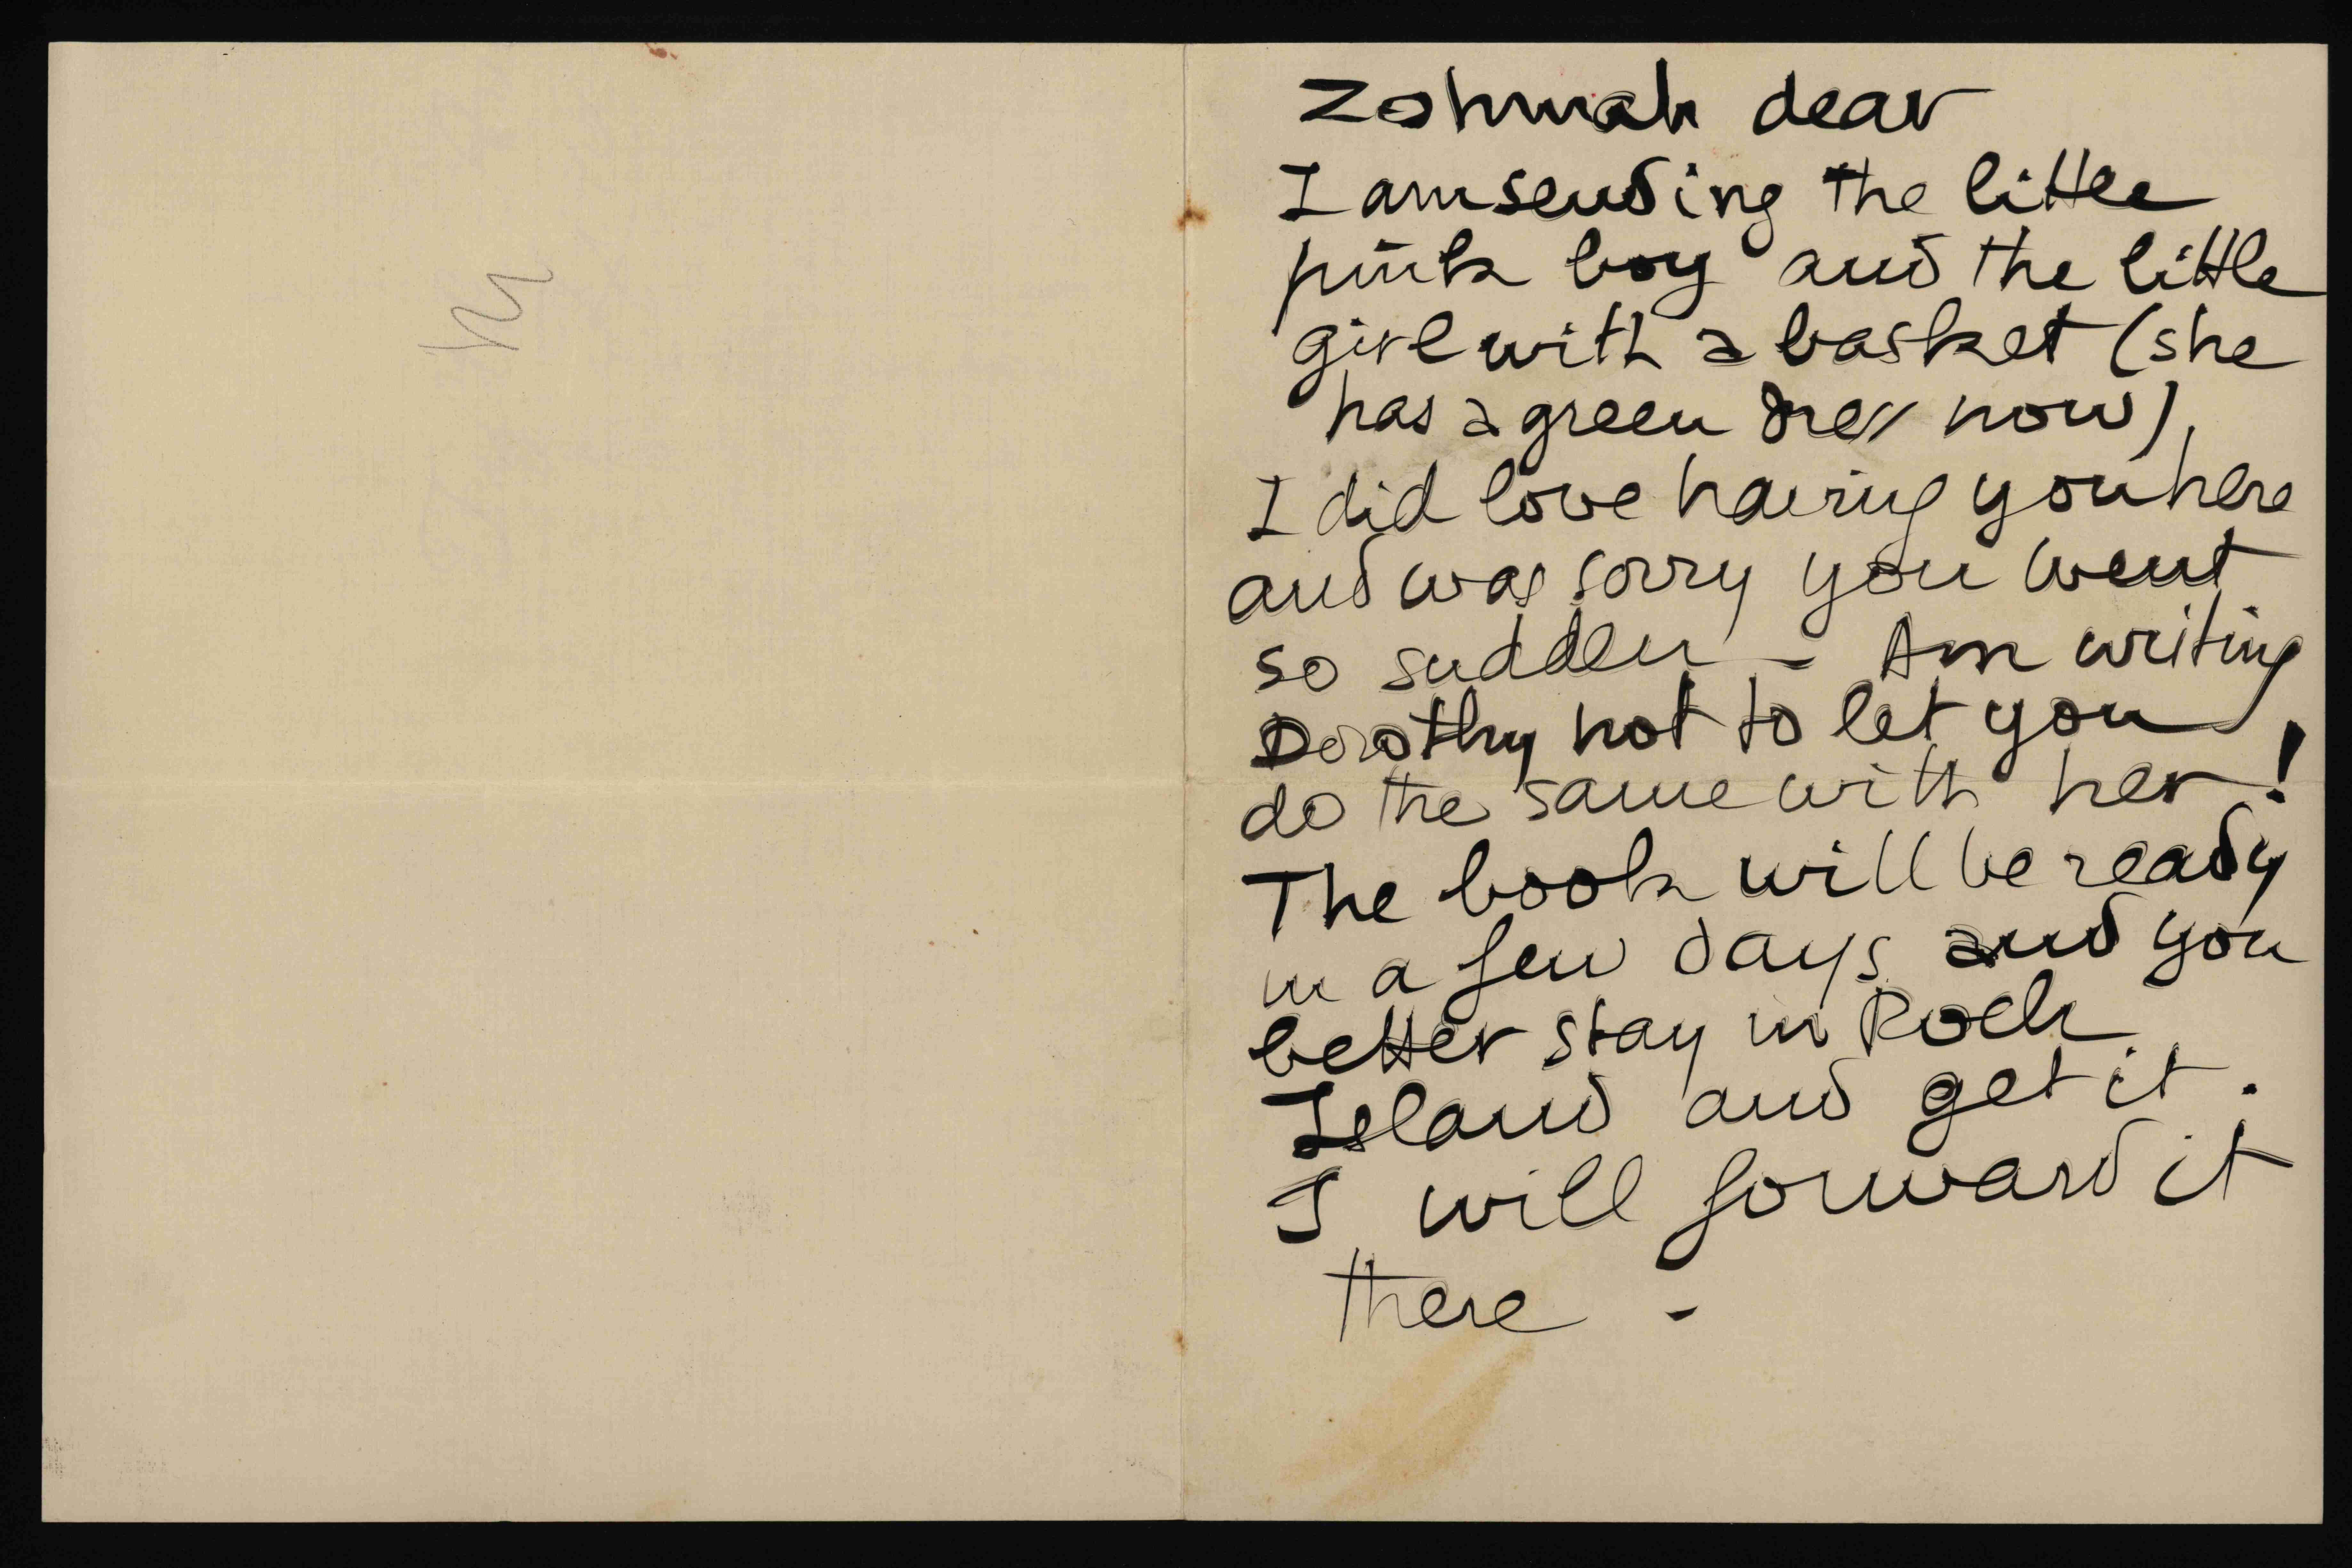 Zohmah dear
I am sending the little
pink boy and the little
girl with a basket (she
has a green dress now),
I did love having you here
and was sorry you went
so sudden - Am writing
Dorothy not to let you
do the same with her!
The book will be ready
in a few days and you
better stay in Rock
Island and get it.
I will forward it
there -